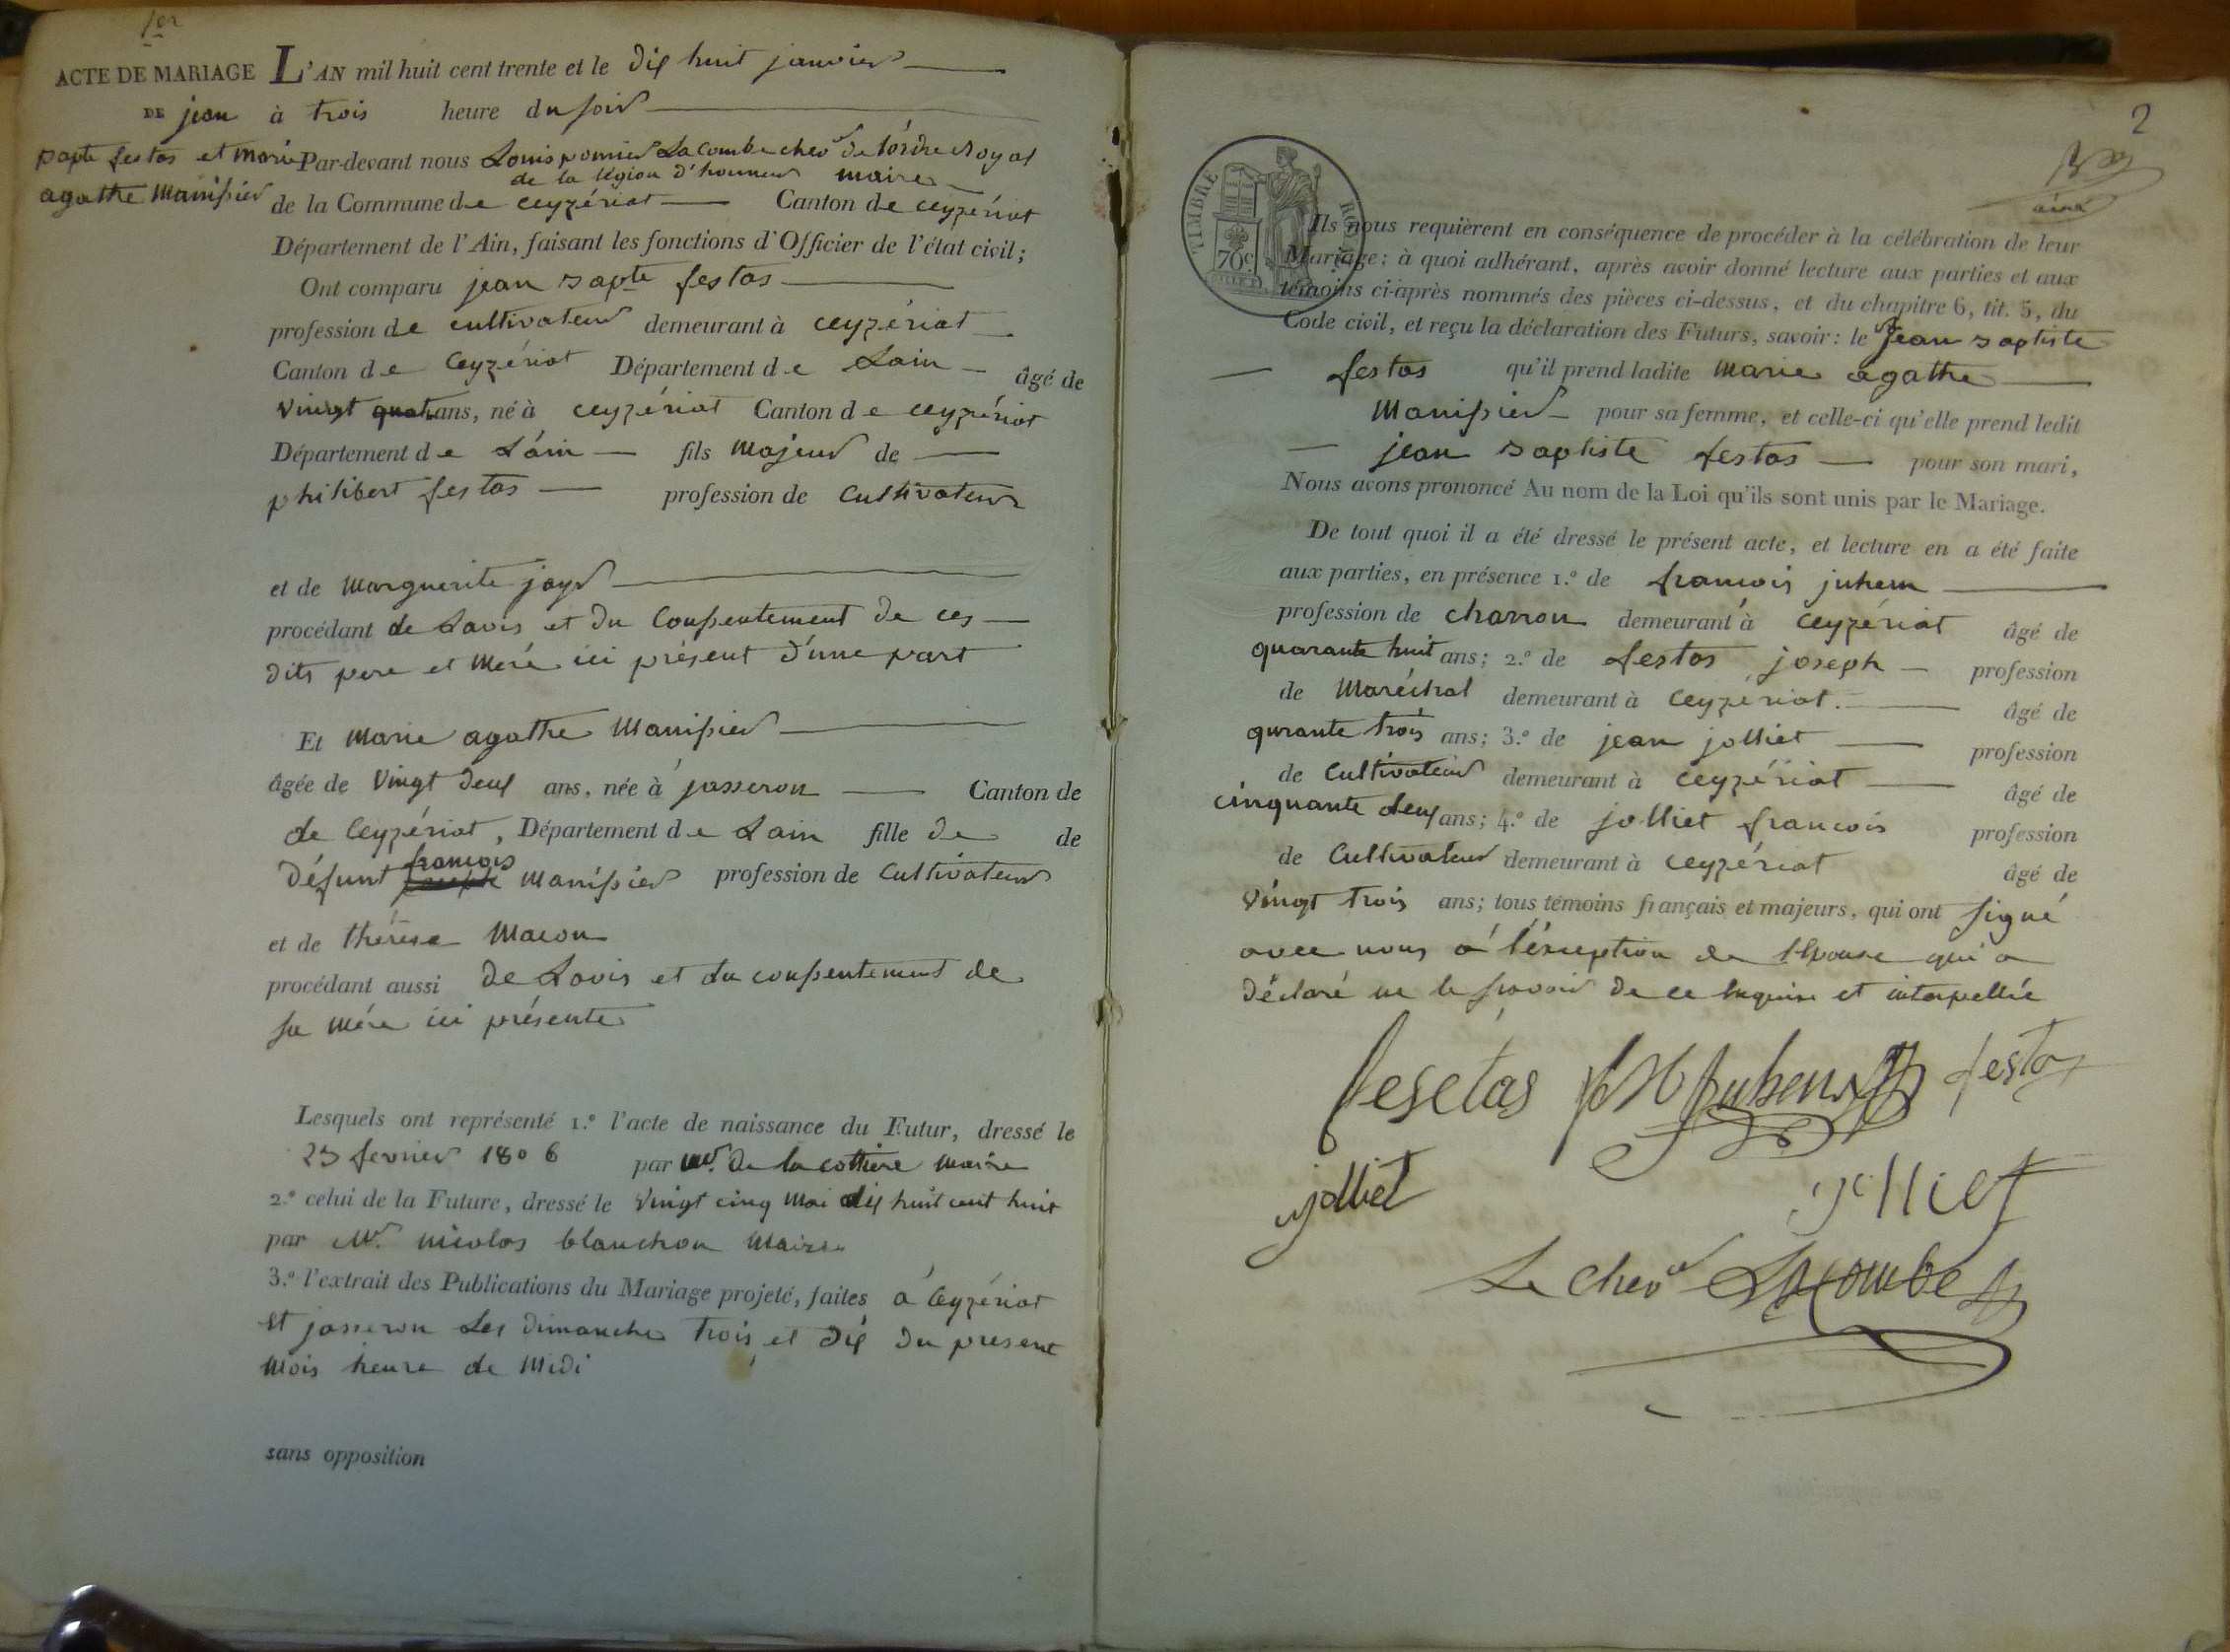 1er
ACTE DE MARIAGE L'AN mil huit cent trente et le dix huit janvier
DE jean à trois heure du soir
bapte festas et marie Par-devant nous Louis pomier Lacombe chevr de l'ordre Royal
de la légion d'honneur maire
agathe Manissier de la Commune de ceyzériat Canton de ceyzériat
Département de l'Ain, faisant les fonctions d'Officier de l'état civil;
Ont comparu jean bapte festas
profession de cultivateur demeurant à ceyzériat
Canton de Ceyzériat Département de Lain âgé de
Vingt quatr ans, né à ceyzériat Canton de ceyzériat
Département de L'ain fils Majeur de
philibert festas profession de Cultivateur
et de Marguerite jayr
procédant de Lavis et du Consentement de ces
dits pere et Meré ici présent d'une part
Et Marie agathe Manissier
âgée de Vingt deux ans, née à jasseron Canton de
de Ceyzériat, Département de Lain fille de de
françois
Défunt Manissier profession de Cultivateur
et de thérèse Macon
procédant aussi de Lavis et du consentement de
sa Mére ici présente
Lesquels ont représenté 1.° l'acte de naissance du Futur, dressé le
23 fevrier 1806 par Mr. De la cottiere Maire
2.° celui de la Future, dressé le Vingt cinq Mai dix huit cent huit
par Mr. nicolas blanchon Maire
3.° l'extrait des Publications du Mariage projeté, faites à Ceyzériat
et jasseron Les dimanche trois et dix du présent
Mois heure de Midi
sans opposition
2
ainé
TIMBRE ROYAL
70c
Ils nous requièrent en conséquence de procéder à la célébration de leur
Mariage; à quoi adhérant, après avoir donné lecture aux parties et aux
témoins ci-après nommés des pièces ci-dessus, et du chapitre 6, tit. 5, du
Code civil, et reçu la déclaration des Futurs, savoir: le Sr Jean baptiste
festas qu'il prend ladite Marie agathe
Manissier pour sa femme, et celle-ci qu'elle prend ledit
jean baptiste festas pour son mari,
Nous avons prononcé Au nom de la Loi qu'ils sont unis par le Mariage.
De tout quoi il a été dressé le présent acte, et lecture en a été faite
aux parties, en présence 1.° de françois juhem
profession de charron demeurant à Ceyzériat âgé de
quarante huit ans; 2.° de festas joseph profession
de Maréchal demeurant à Ceyzériat. âgé de
qurante trois ans; 3.° de jean jolliet profession
de Cultivateur demeurant à Ceyzériat âgé de
cinquante deux ans; 4.° de jolliet françois profession
de Cultivateur demeurant à Ceyzériat âgé de
Vingt trois ans; tous témoins français et majeurs, qui ont signé
avec nous à l'éxception de l'Epouse qui a
Déclaré ne le savoir de ce Requise et interpellée
fesetas juhem festas
jolliet jolliet
Le chevr Lacombe